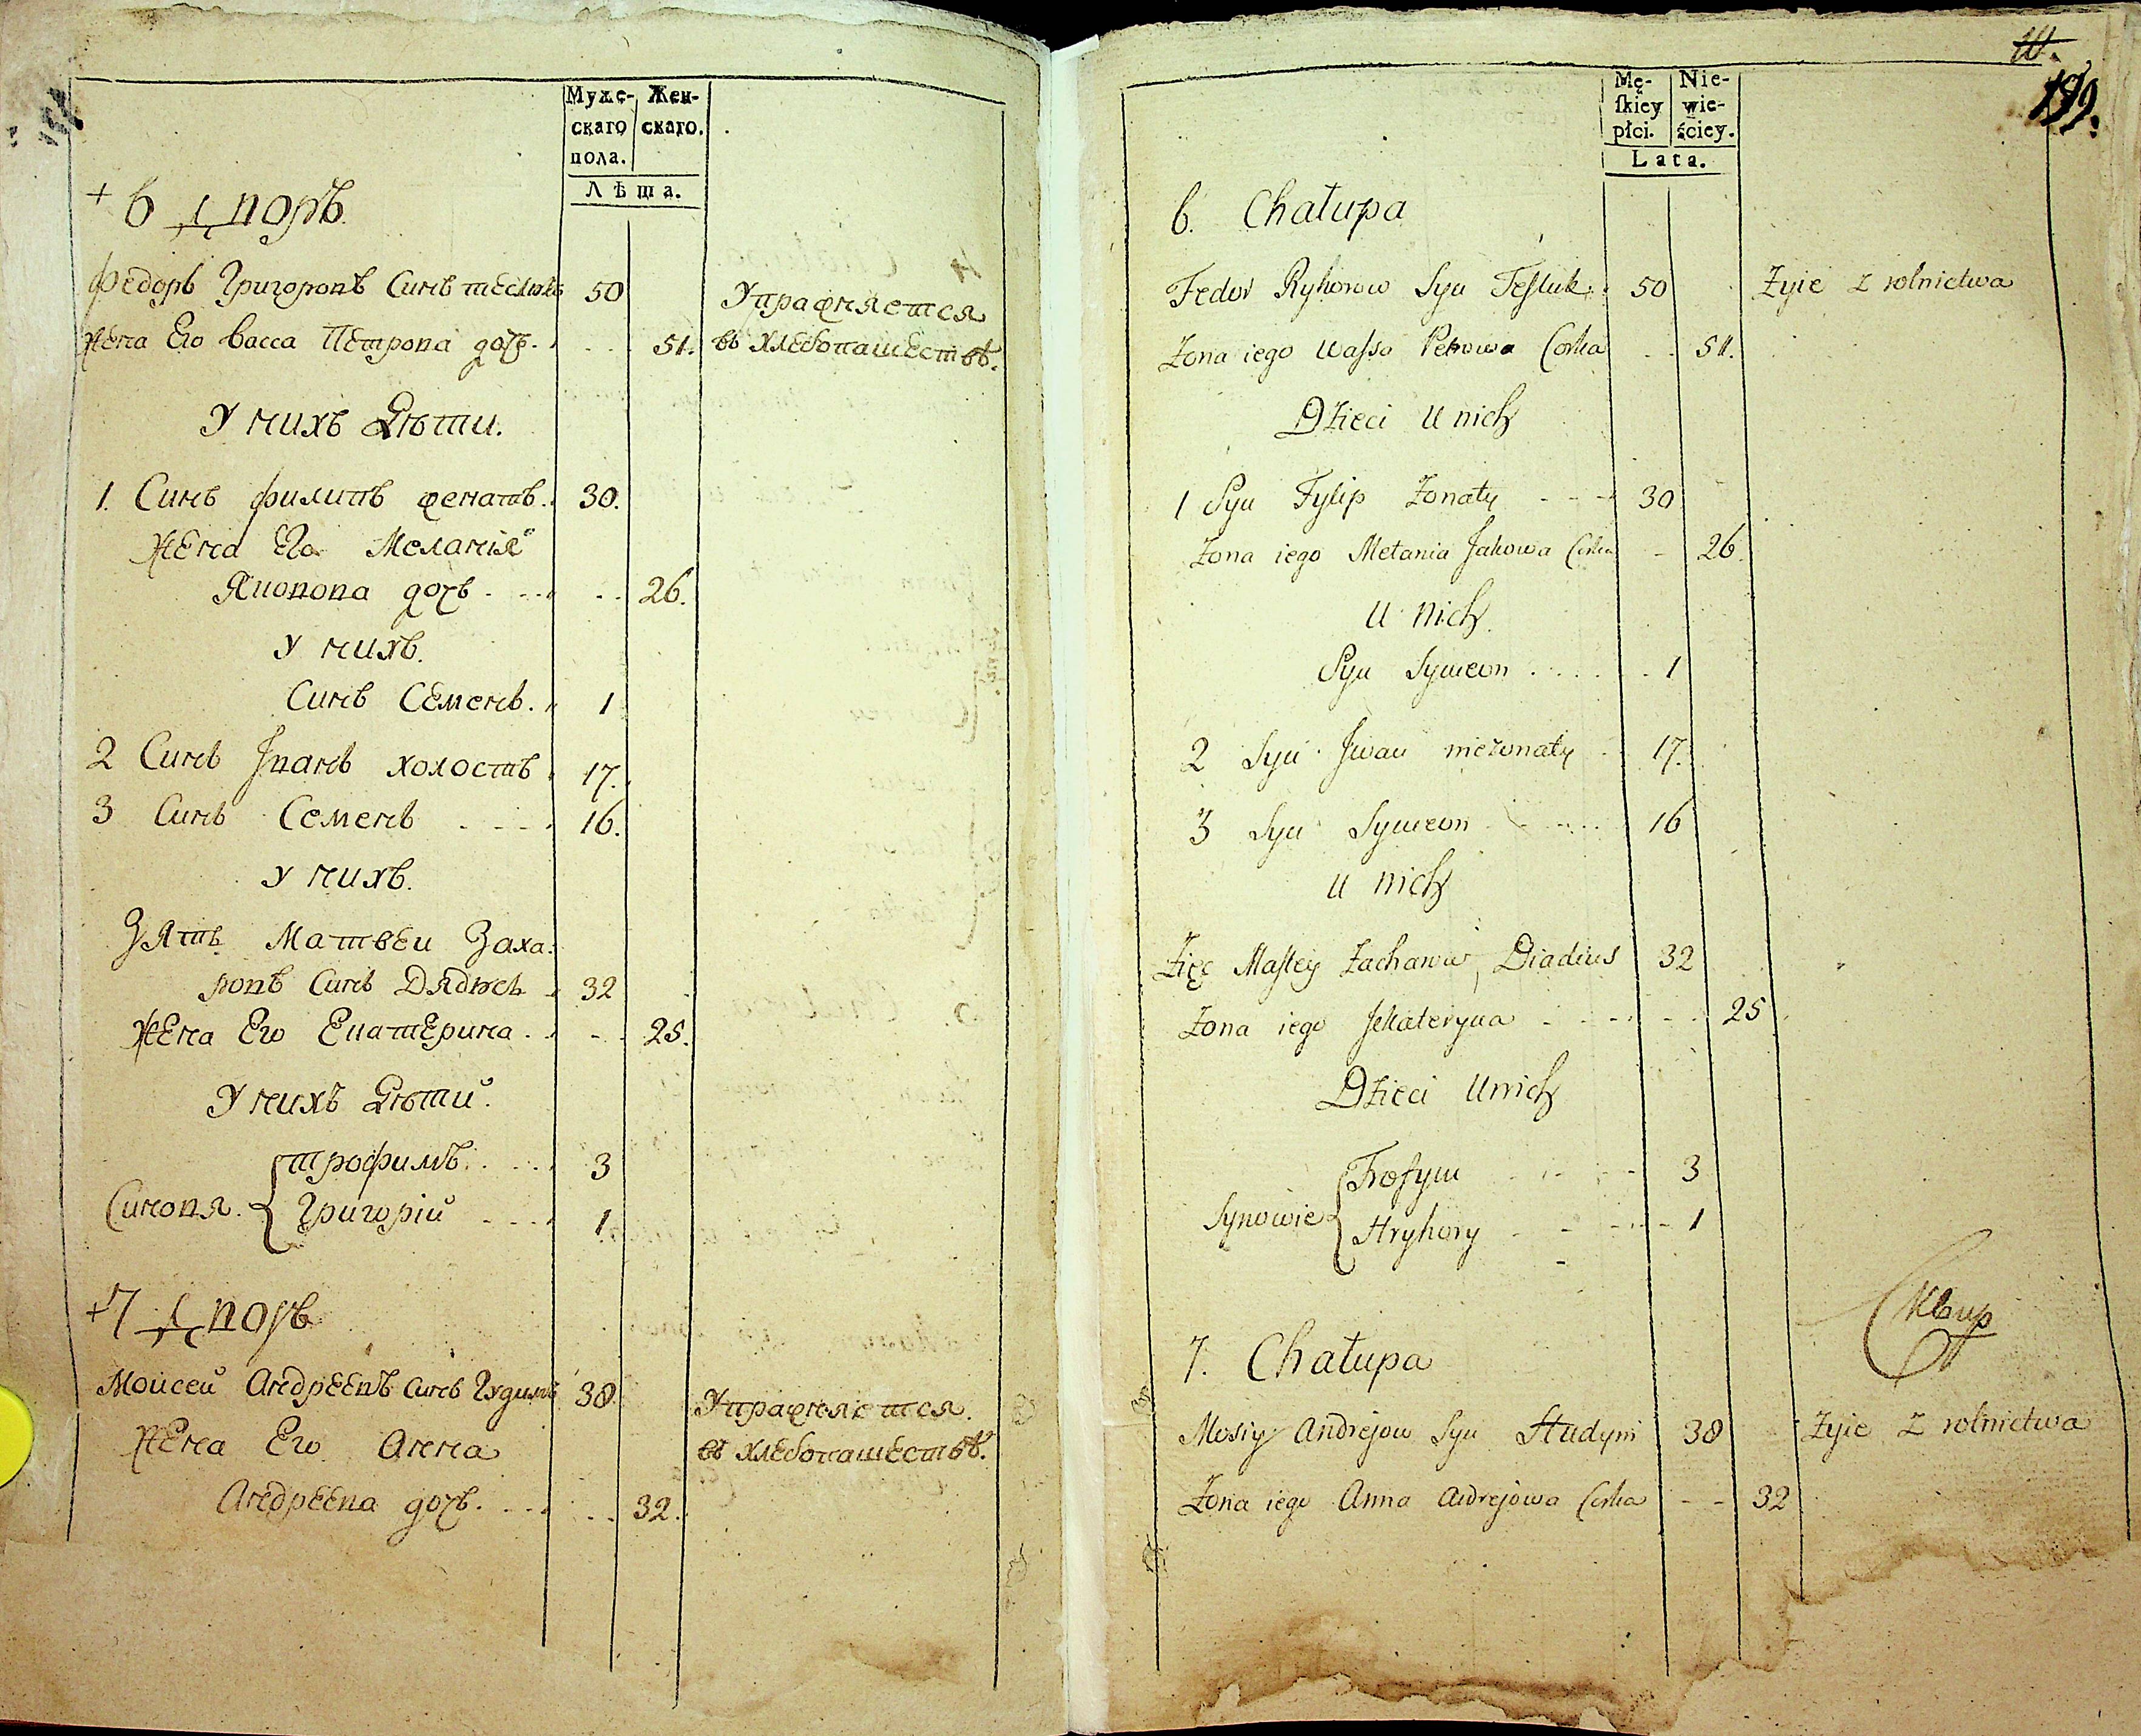 Муже- Жен-
скаго скаго.
пола.
Лѣта.
+ 6 дворъ.
Федоръ Григоровъ Синъ теслюкъ 50 Упражняется
Жена Его Васса Петрова дочь. 51. въ хлебопашествѣ.
У нихъ Дѣти.
1. Синъ филипъ женатъ. 30.
Жена Его Меланія
Яковова дочь 26.
У нихъ.
Синъ Семенъ. 1
2 Синъ Іванъ холостъ 17.
3 Синъ Семенъ 16.
У нихъ.
Зять Матвеи Заха:
ровъ Синъ 32
Жена Его Екатерина 25.
У нихъ Дѣти.
Синовя. { трофимъ. 3
Григорій 1
+7 дворъ
Моисей Андреевъ Синъ 38. Упражняется.
Жена Его Анна въ хлебопашествѣ.
Андреева дочь. 32.
10.
199.
Mę- Nie-
skiey wie-
płci. ściey.
Lata.
6. Chałupa
Fedor Ryhorow Syn Tesluk 50 Żyie z rolnictwa
Żona iego Wassa Petrowa Corka 51.
Dzieci U nich
1 Syn Fylip Żonaty 30
Żona iego Mełania Jakowa Corka 26.
U nich
Syn Symeon 1
2 Syn Jwan nieżonaty 17.
3 Syn Symeon 16
U nich
Zięc Matfey Zacharow Diadius 32
Żona iego Jekateryna 25
Dzieci U nich
Synowie { Trofym 3
Hryhory 1
7. Chałupa
Mosiy Andrejow Syn Hudym 38 Żyie z rolnictwa
Żona iego Anna Andrejowa Corka 32